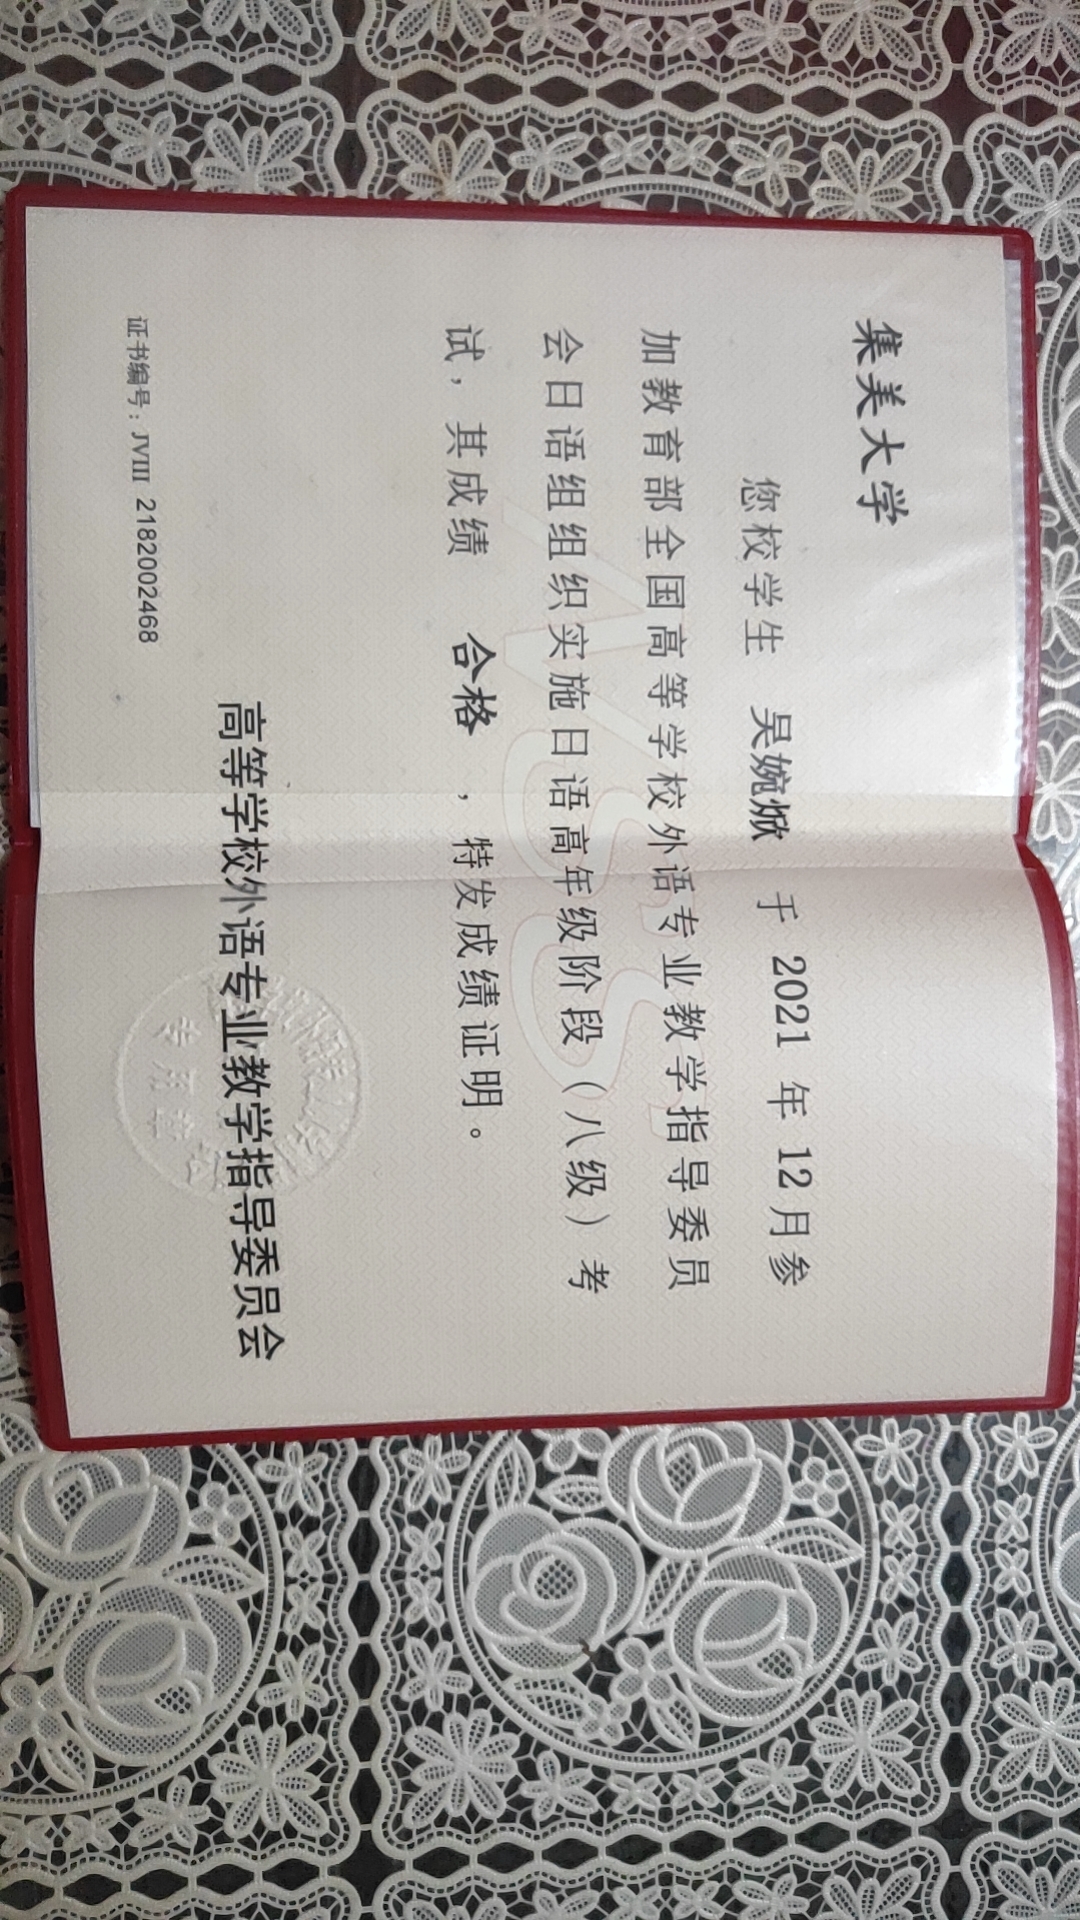 集美大学
您校学生 吴婉焮 于 2021 年 12月参
加教育部全国高等学校外语专业教学指导委员
会日语组组织实施日语高年级阶段（八级）考
试，其成绩 合格 ，特发成绩证明。
高等学校外语专业教学指导委员会
证书编号：JVIII 2182002468